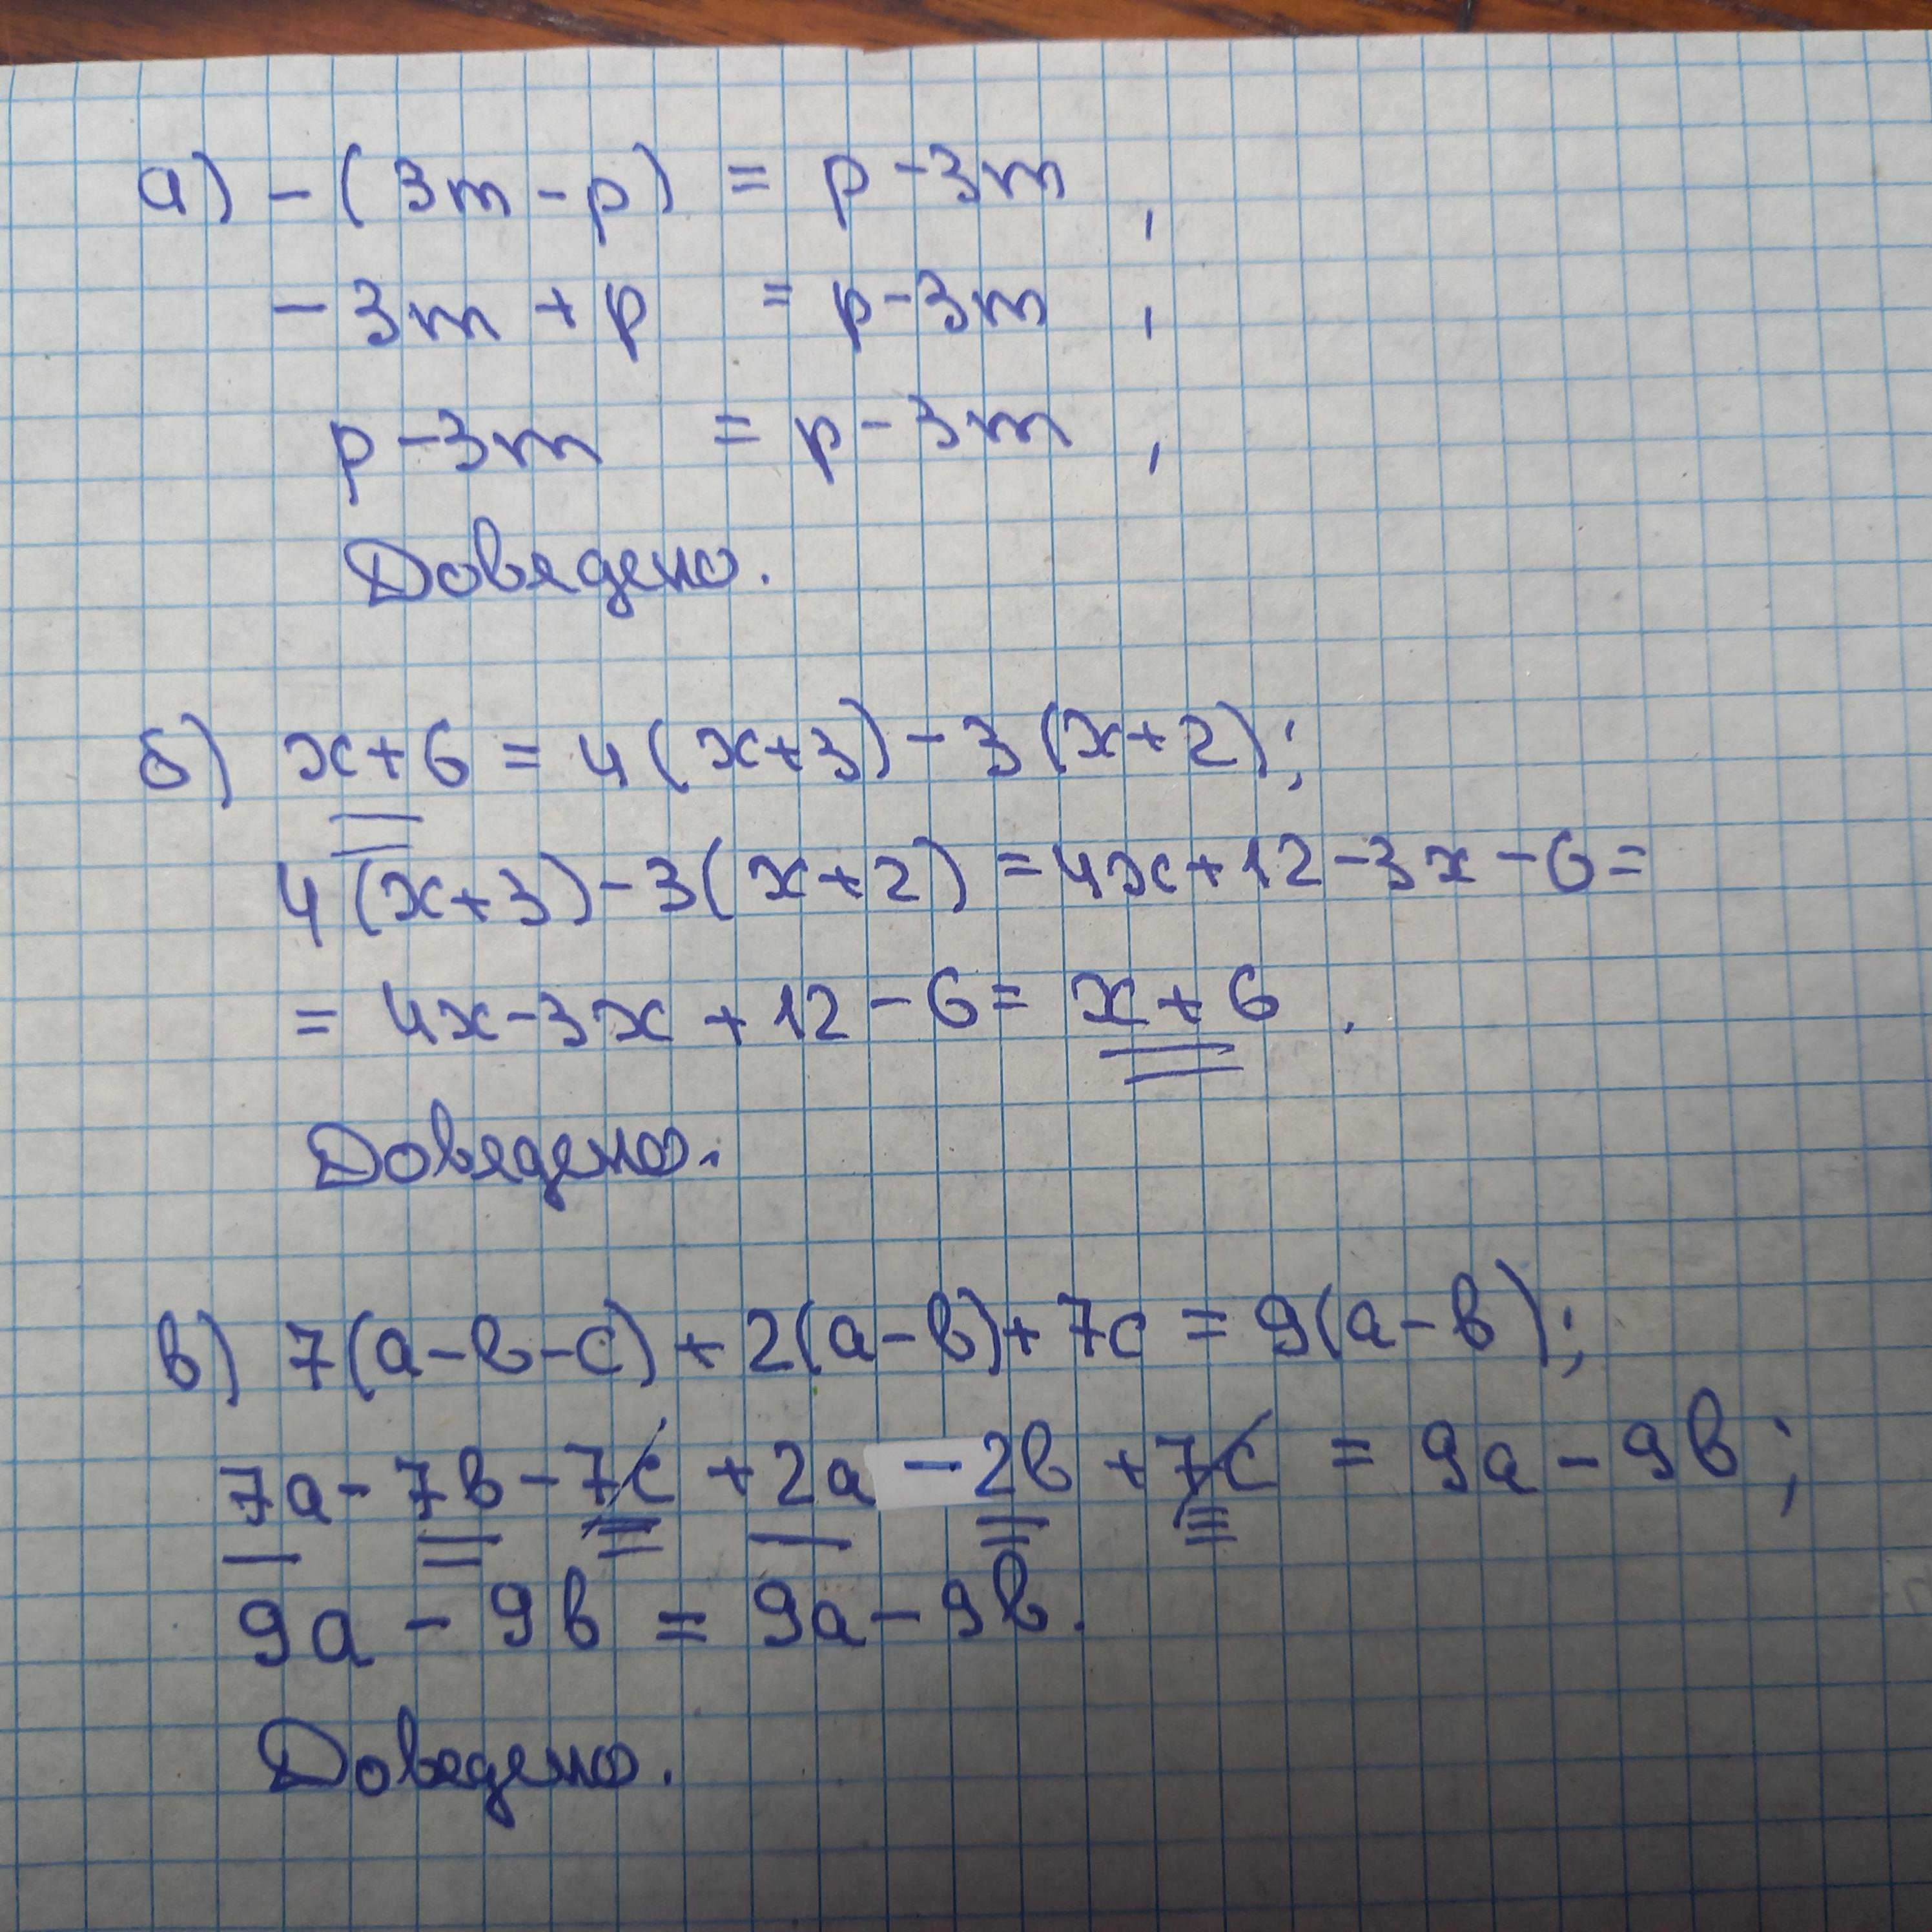 а) - (3m - p) = p - 3m ,
- 3m + p = p - 3m ,
p - 3m = p - 3m ,
Доведено.
б) x + 6 = 4(x+3) - 3(x+2);
4(x+3) - 3(x+2) = 4x + 12 - 3x - 6 =
= 4x - 3x + 12 - 6 = x + 6 .
Доведено.
в) 7(a - b - c) + 2(a - b) + 7c = 9(a - b);
7a - 7b - 7c + 2a - 2b + 7c = 9a - 9b ;
9a - 9b = 9a - 9b.
Доведено.